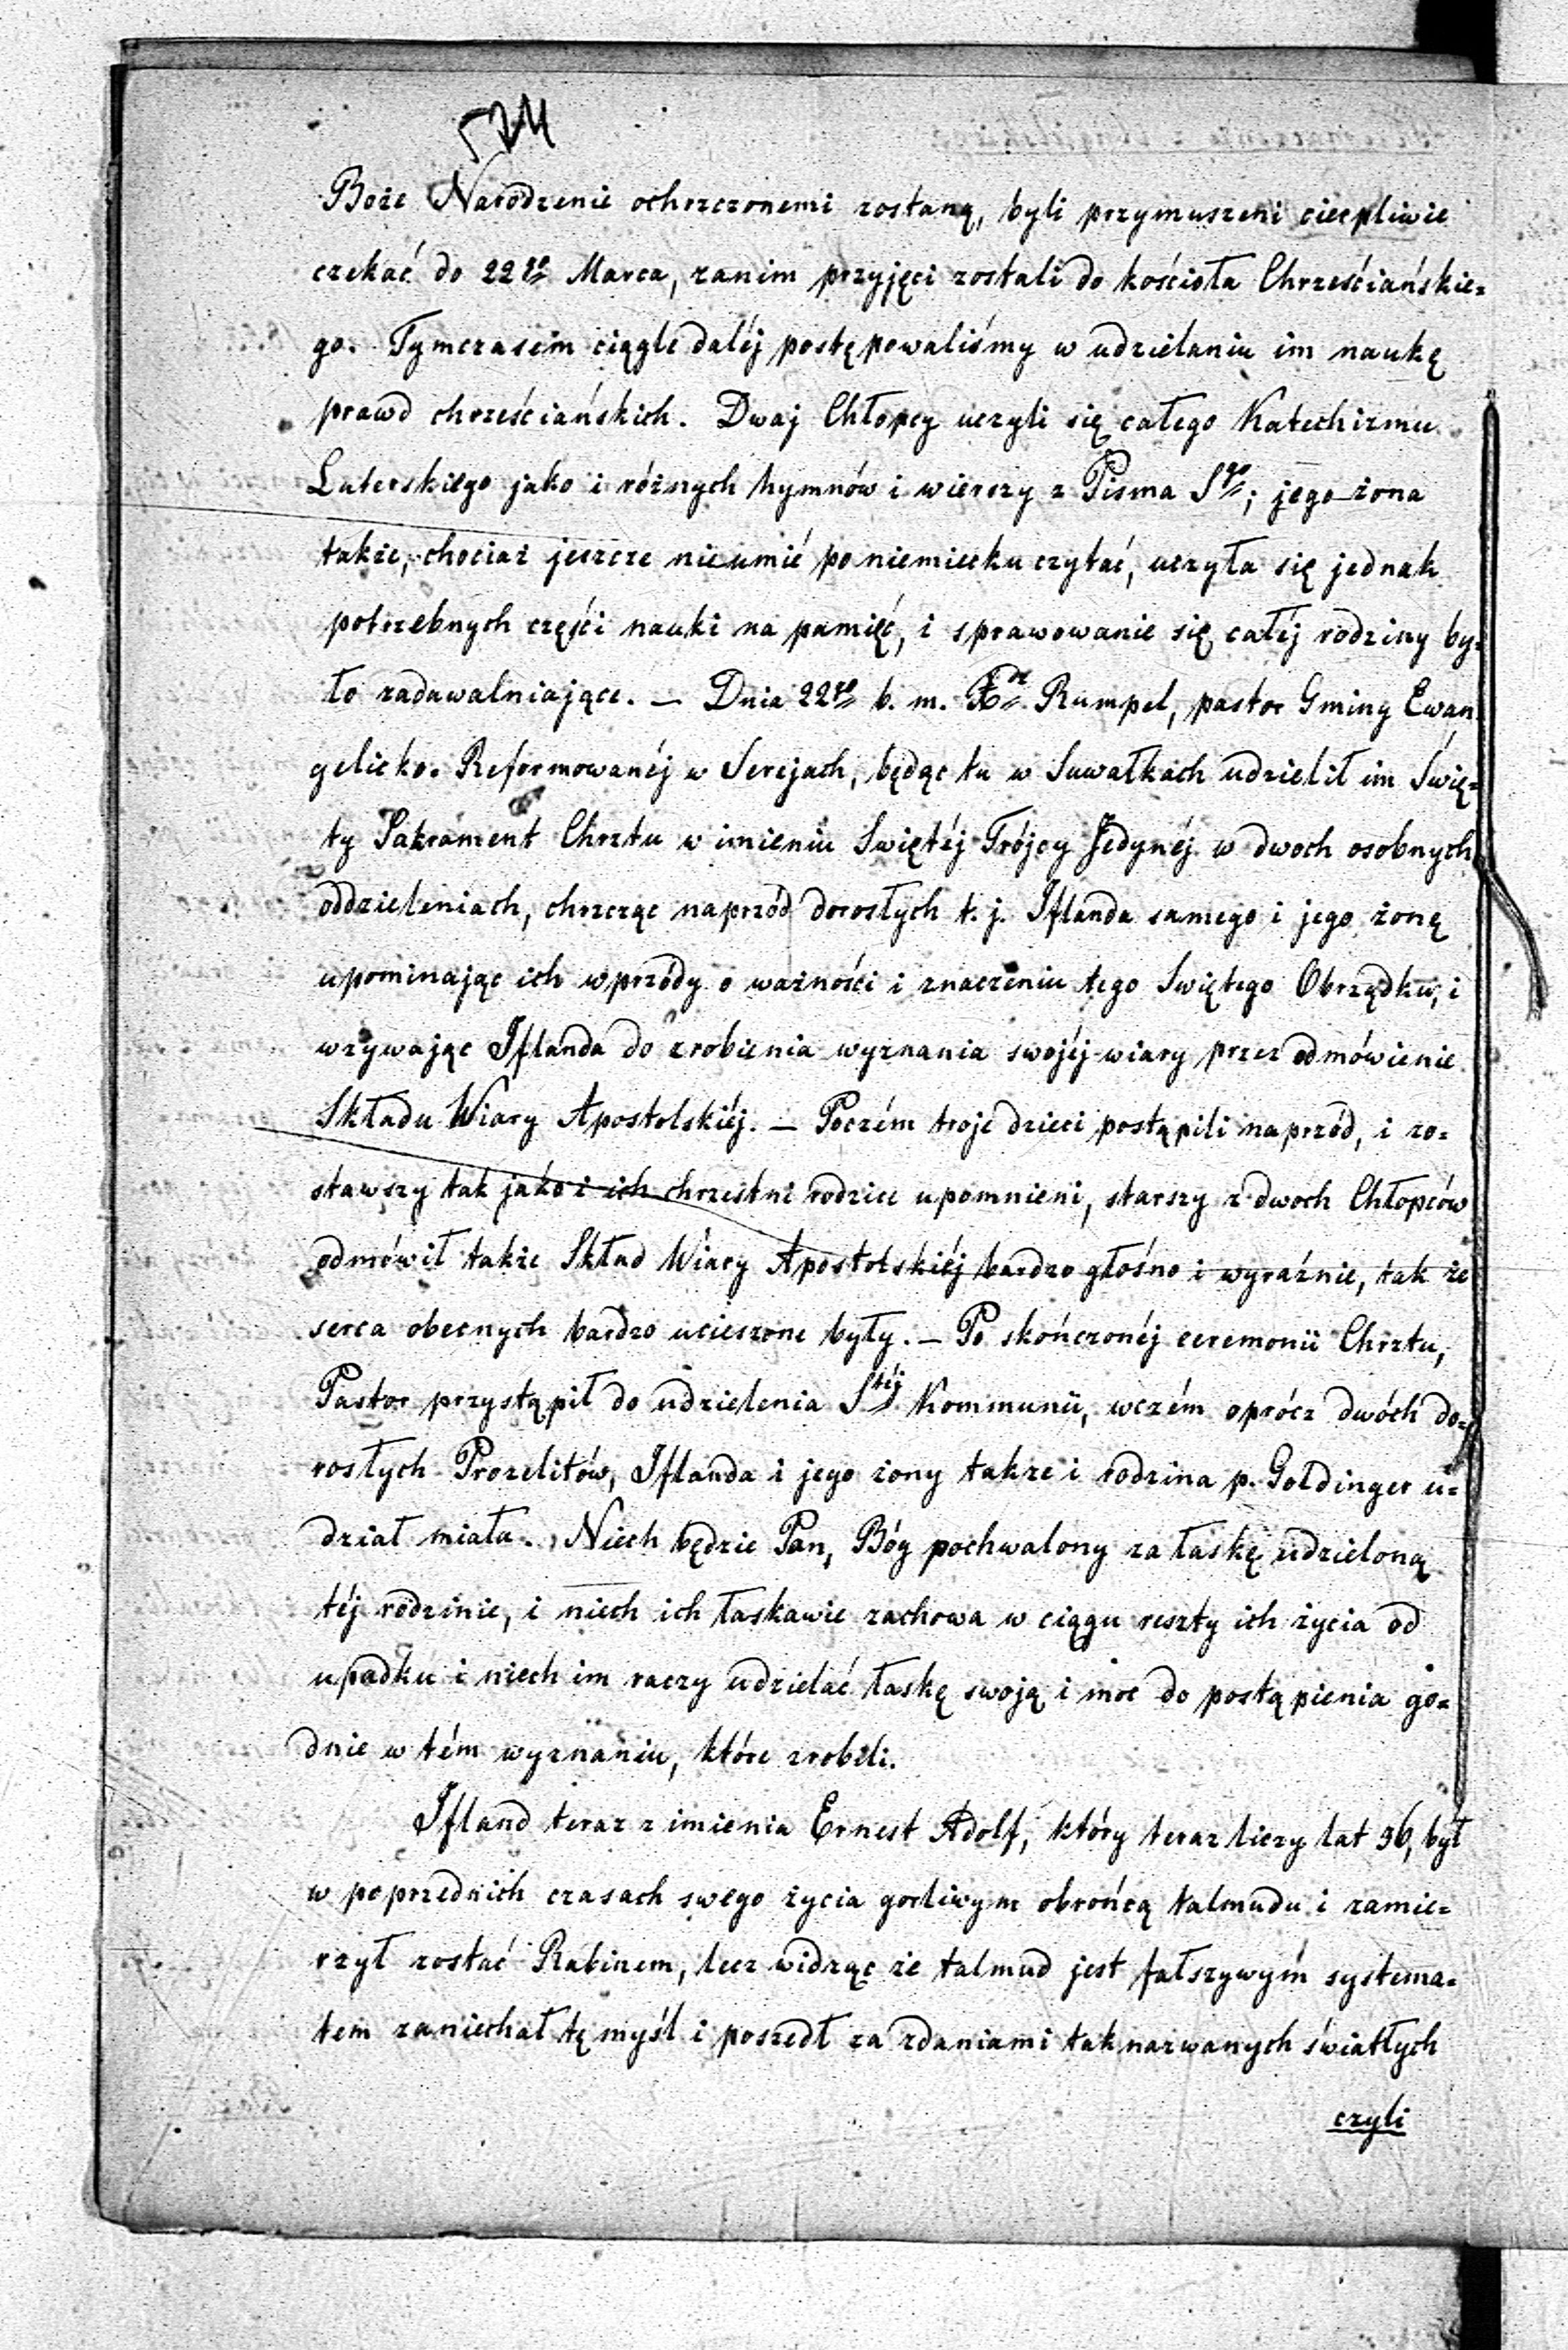 524
Boże Narodzenie ochrzczonemi zostaną, byli przymuszeni cierpliwie
czekać do 22go Marca, zanim przyjęci zostali do kościoła Chrześciańskie=
go. Tymczasem ciągle daléj postępowaliśmy w udzielaniu im naukę
prawd chrześciańskich. Dwaj Chłopcy uczyli się całego Katechizmu
Luterskiego jako i różnych hymnów i wierszy z Pisma Sgo; jego żona
także, chociaż jeszcze nie umié po niemiecku czytać, uczyła się jednak
potrzebnych części nauki na pamięć, i sprawowanie się całéj rodziny by=
ło zadawalniające. — Dnia 22go b. m. Xdz Rumpel, pastor Gminy Ewan
gelicko. Reformowanéj w Serejach, będąc tu w Suwałkach udzielił im Świę=
ty Sakrament Chrztu w imieniu Swiętéj Trójcy Jedynéj w dwoch osobnych
oddzieleniach, chrzcząc naprzód dorosłych t. j. Iflanda samego i jego żonę
upominając ich wprzódy o ważności i znaczeniu tego Swiętego Obrządku, i
wzywając Iflanda do zrobienia wyznania swojéj wiary przez odmówienie
Składu Wiary Apostolskiéj. — Poczém troje dzieci postąpili naprzód, i zo=
stawszy tak jako i ich chrzestni rodzice upomnieni, starszy z dwoch Chłopców
odmówił także Skład Wiary Apostolskiéj bardzo głośno i wyraźnie, tak że
serca obecnych bardzo ucieszone były. — Po skończonéj ceremonii Chrztu,
Pastor przystąpił do udzielenia Stéj Kommunii, wczém oprócz dwóch do=
rosłych Prozelitów, Iflanda i jego żony także i rodzina p. Goldinger u=
dział miała. Niech będzie Pan, Bóg pochwalony za łaskę udzieloną
téj rodzinie, i niech ich łaskawie zachowa w ciągu reszty ich życia od
upadku i niech im raczy udzielać łaskę swoją i moc do postąpienia go=
dnie w tém wyznaniu, które zrobili.
Ifland teraz z imienia Ernest Adolf, który teraz liczy lat 36, był
w poprzednich czasach swego życia gorliwym obrońcą talmudu i zamie=
rzył zostać Rabinem, lecz widząc że talmud jest fałszywym systema=
tem zaniechał tę myśl i poszedł za zdaniami tak nazwanych światłych
czyli